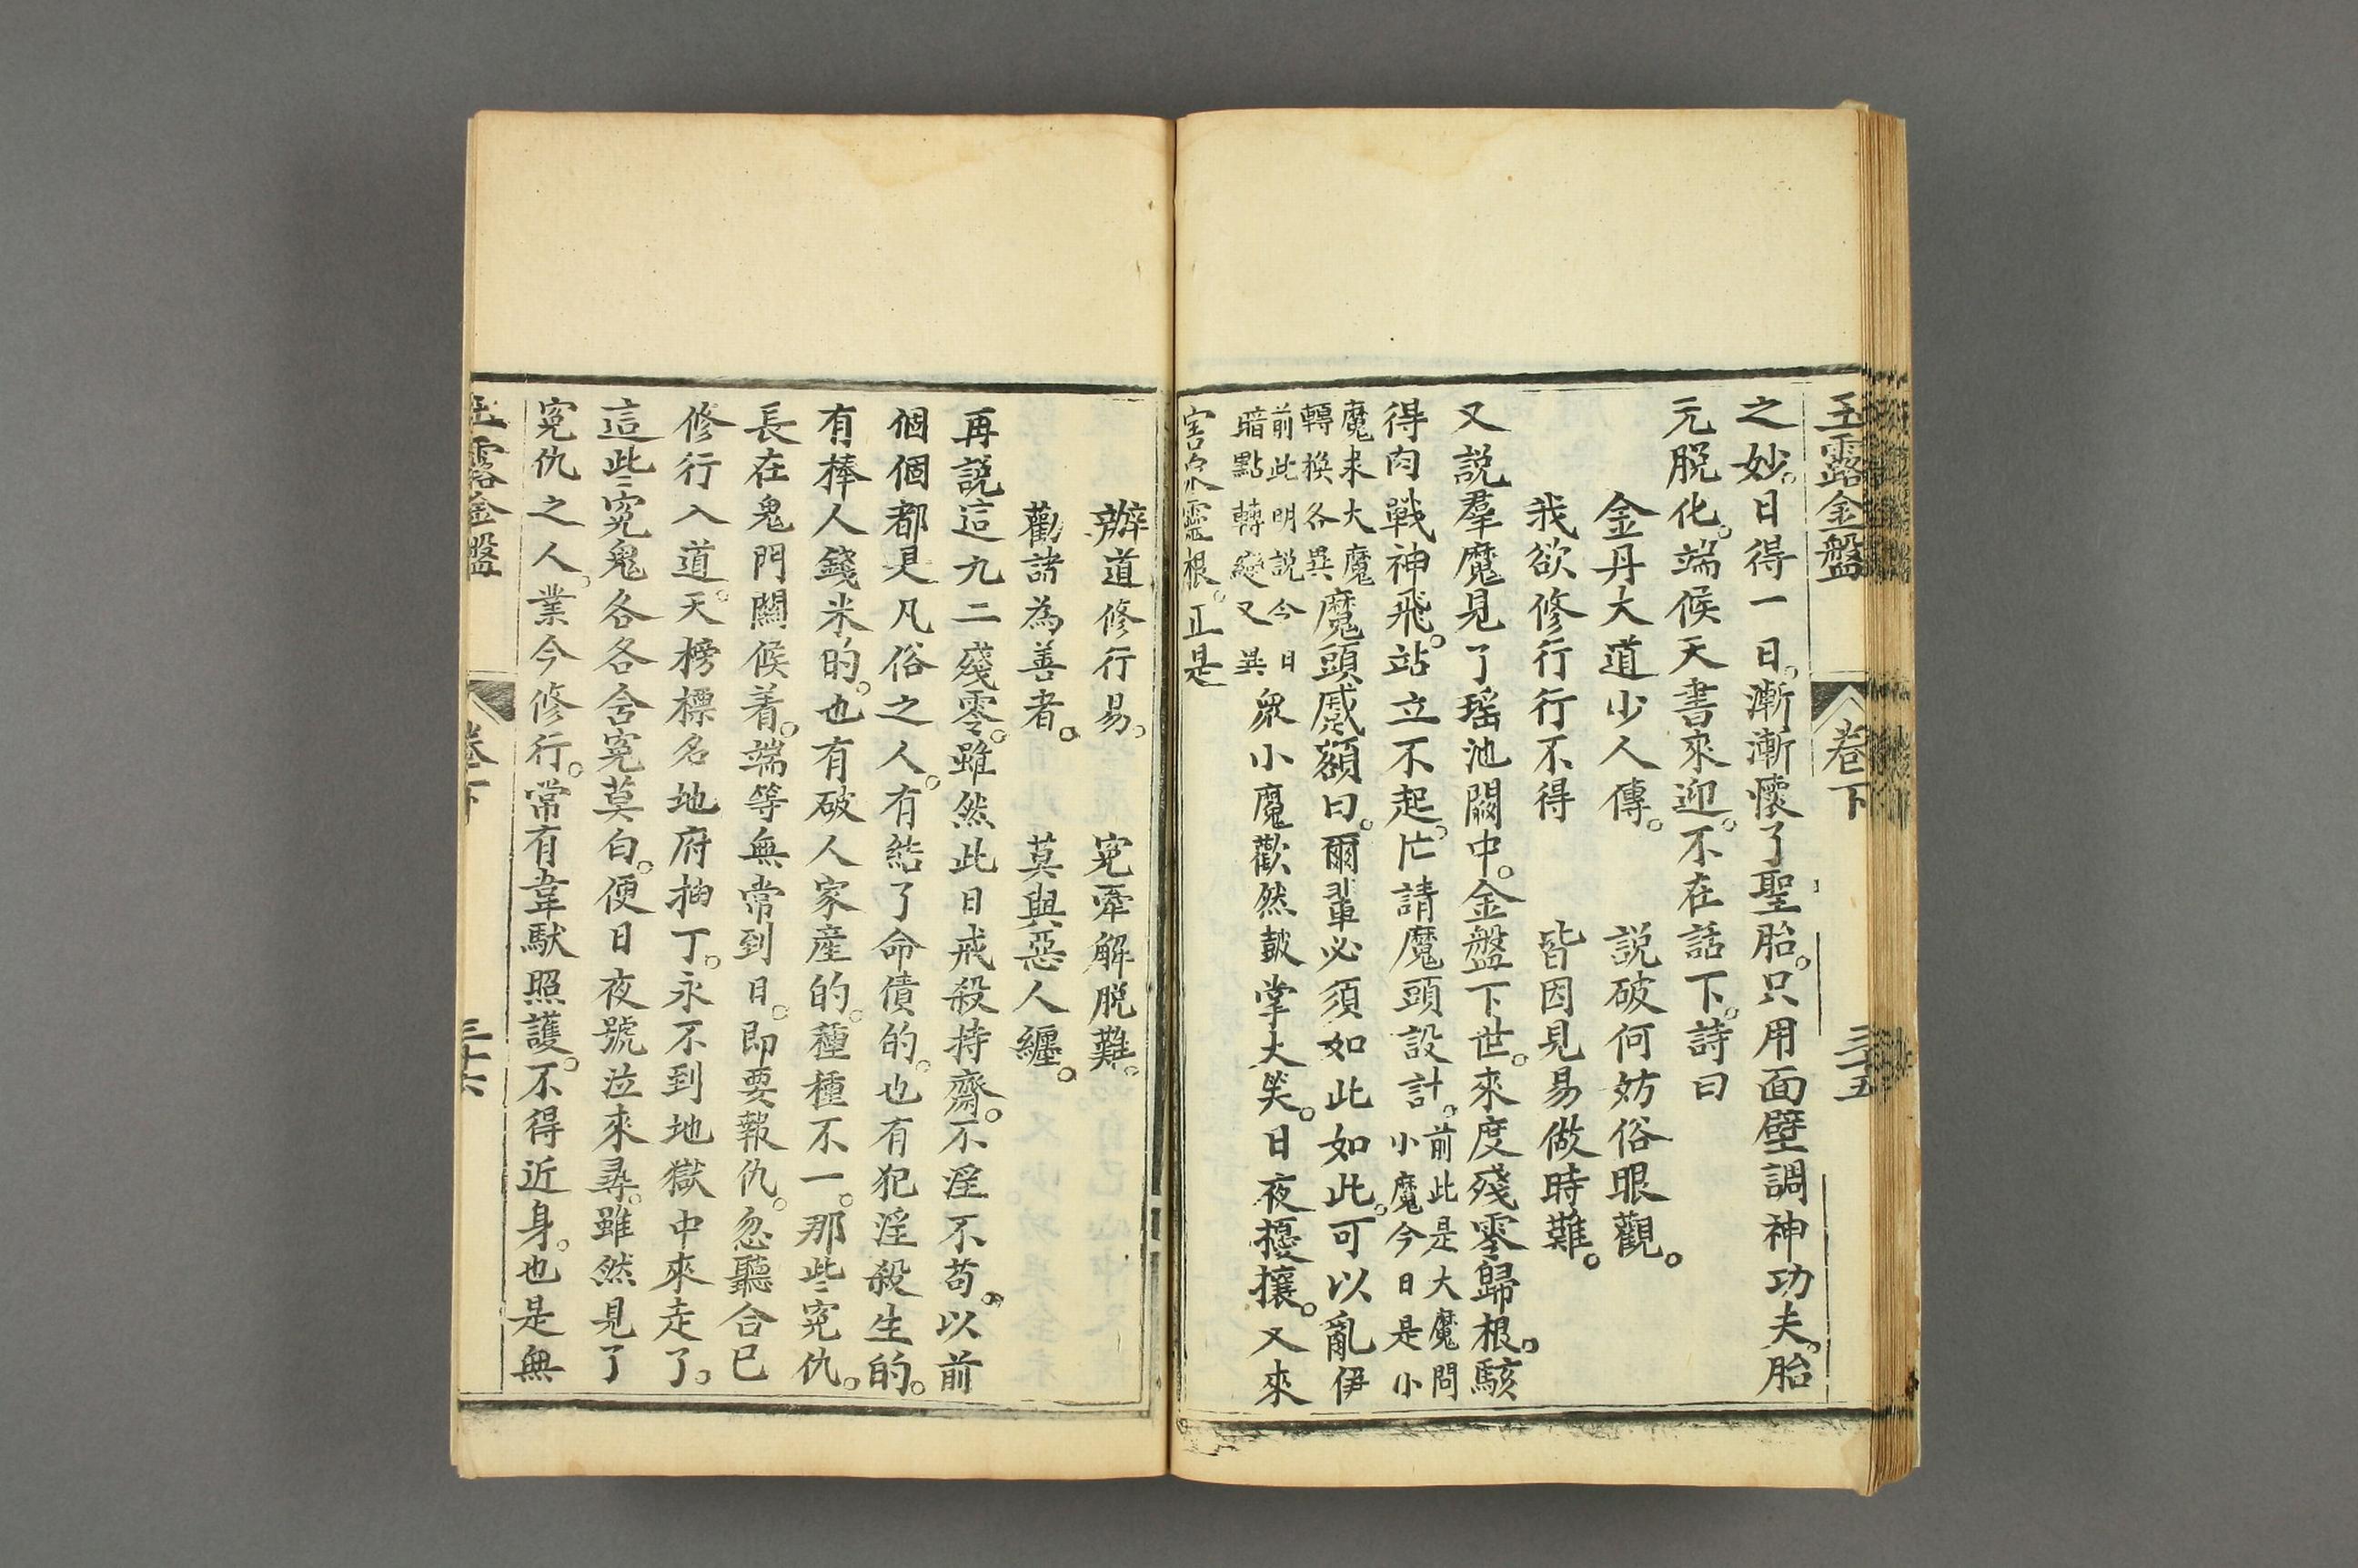 玉露金盤 卷下 三十五
之妙。日得一日。漸漸懷了聖胎。只用面壁調神功夫。胎
元脫化。端候天書來迎。不在話下。詩曰
金丹大道少人傳。 說破何妨俗眼觀。
我欲修行行不得 皆因見易做時難。
又説羣魔見了瑤池闕中。金盤下世。來度殘零歸根。駭
得肉戰神飛。站立不起。忙請魔頭設計。前此是大魔問小魔今日是小
魔求大魔轉換各異魔頭感額曰。爾輩必須如此如此。可以亂伊
前此明説今日暗點轉變又異衆小魔歡然鼓掌大笑。日夜擾攘。又來
害眾靈根。正是
辦道修行易。 寃牽解脫難。
勸諸為善者。 莫與惡人纏。
再説這九二殘零。雖然此日戒殺持齋。不淫不苟。以前
個個都是凡俗之人。有結了命債的。也有犯淫殺生的。
有棒人錢米的。也有破人家產的。種種不一。那些寃仇。
長在鬼門關候着。端等無常到日。即要報仇。忽聽合巳
修行入道。天榜標名地府抽丁。永不到地獄中來走了。
這些寃鬼各各含寃莫白。便日夜號泣來尋。雖然見了
寃仇之人。業今修行。常有韋馱照護。不得近身。也是無
玉露金盤 卷下 三十六